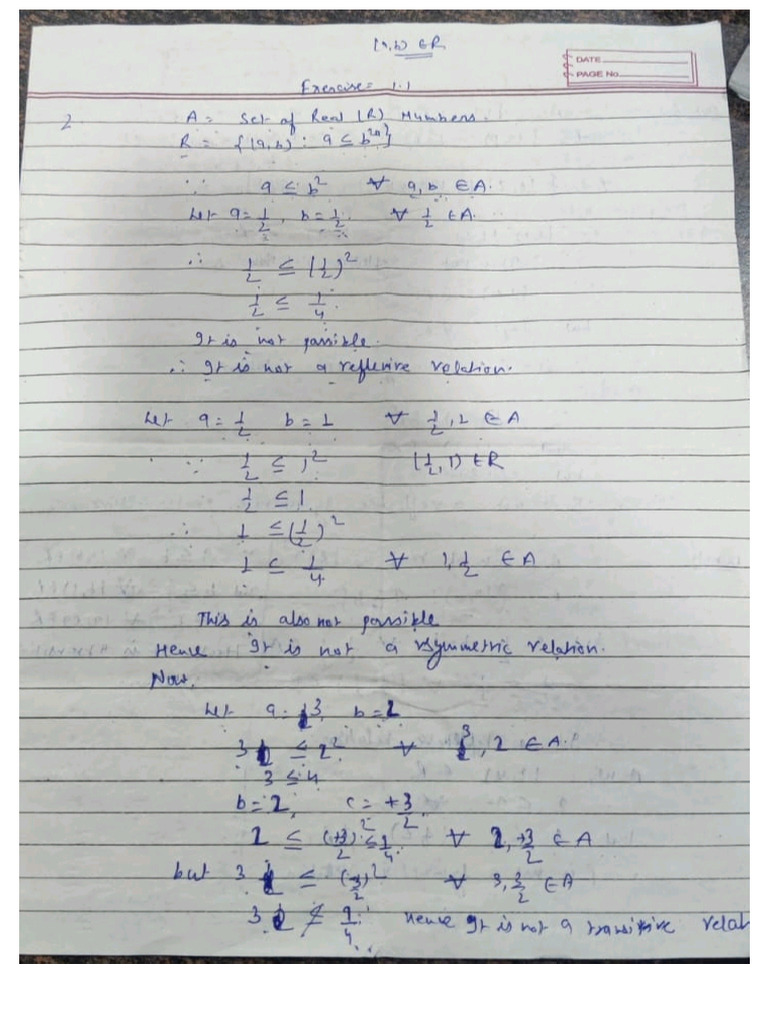 (a,b) ∈ R
DATE
PAGE No.
Exercise = 1.1
2. A = Set of Real (R) Numbers.
R = {(a,b) : a ≤ b²}
∵ a ≤ b² ∀ a, b ∈ A.
Let a = 1/2, b = 1/2. ∀ 1/2 ∈ A.
∴ 1/2 ≤ (1/2)²
1/2 ≤ 1/4.
It is not possible.
∴ It is not a reflexive relation.
Let a = 1/2 b = 1 ∀ 1/2, 1 ∈ A
∵ 1/2 ≤ 1² (1/2, 1) ∈ R
1/2 ≤ 1
∴ 1 ≤ (1/2)²
1 ≤ 1/4 ∀ 1, 1/2 ∈ A
This is also not possible
Hence It is not a symmetric relation.
Now.
Let a = 3, b = 2
3 ≤ 2² ∀ 3, 2 ∈ A.
3 ≤ 4
b = 2, c = +3/2
2 ≤ (+3/2)² ≤ 1/4. ∀ 2, +3/2 ∈ A
but 3 ≤ (3/2)² ∀ 3, 3/2 ∈ A
3 ≰ 9/4. Hence It is not a transitive relat